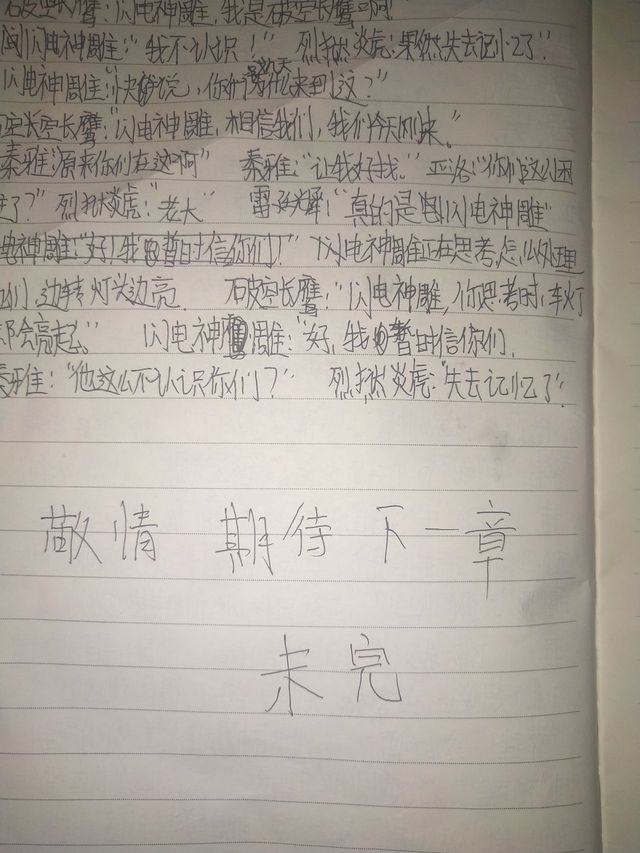 破空长鹰：闪电神雕，我是破空长鹰啊！
闪电神雕：“我不认识！” 烈焰炎虎：果然失去记忆了”
闪电神雕：“快说，你们为什么来到这？”
破空长鹰：“闪电神雕，相信我们，我们今天刚来。”
秦雅：“原来你们在这啊” 秦雅：“让我好找。” 亚洛：“你们这么困
了？” 烈焰炎虎：“老大” 雷 ：“真的是闪电神雕”
电神雕：“好！我暂时信你们！” 闪电神雕正在思考，怎么处理
们，边转灯头边亮。 破空长鹰：“闪电神雕，你思考时，车灯
都会亮起。” 闪电神雕：“好，我暂时信你们。
秦雅：“他这么不认识你们？” 烈焰炎虎：“失去记忆了”
敬情 期待 下一章
未完